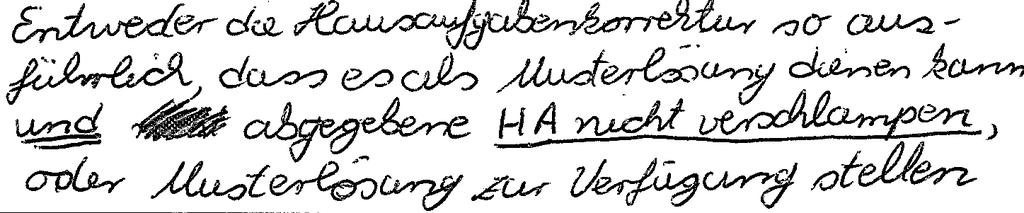 Entweder die Hausaufgabenkorrektur so aus-
führlich, dass es als Musterlösung dienen kann
und abgegebene HA nicht verschlampen,
oder Musterlösung zur Verfügung stellen